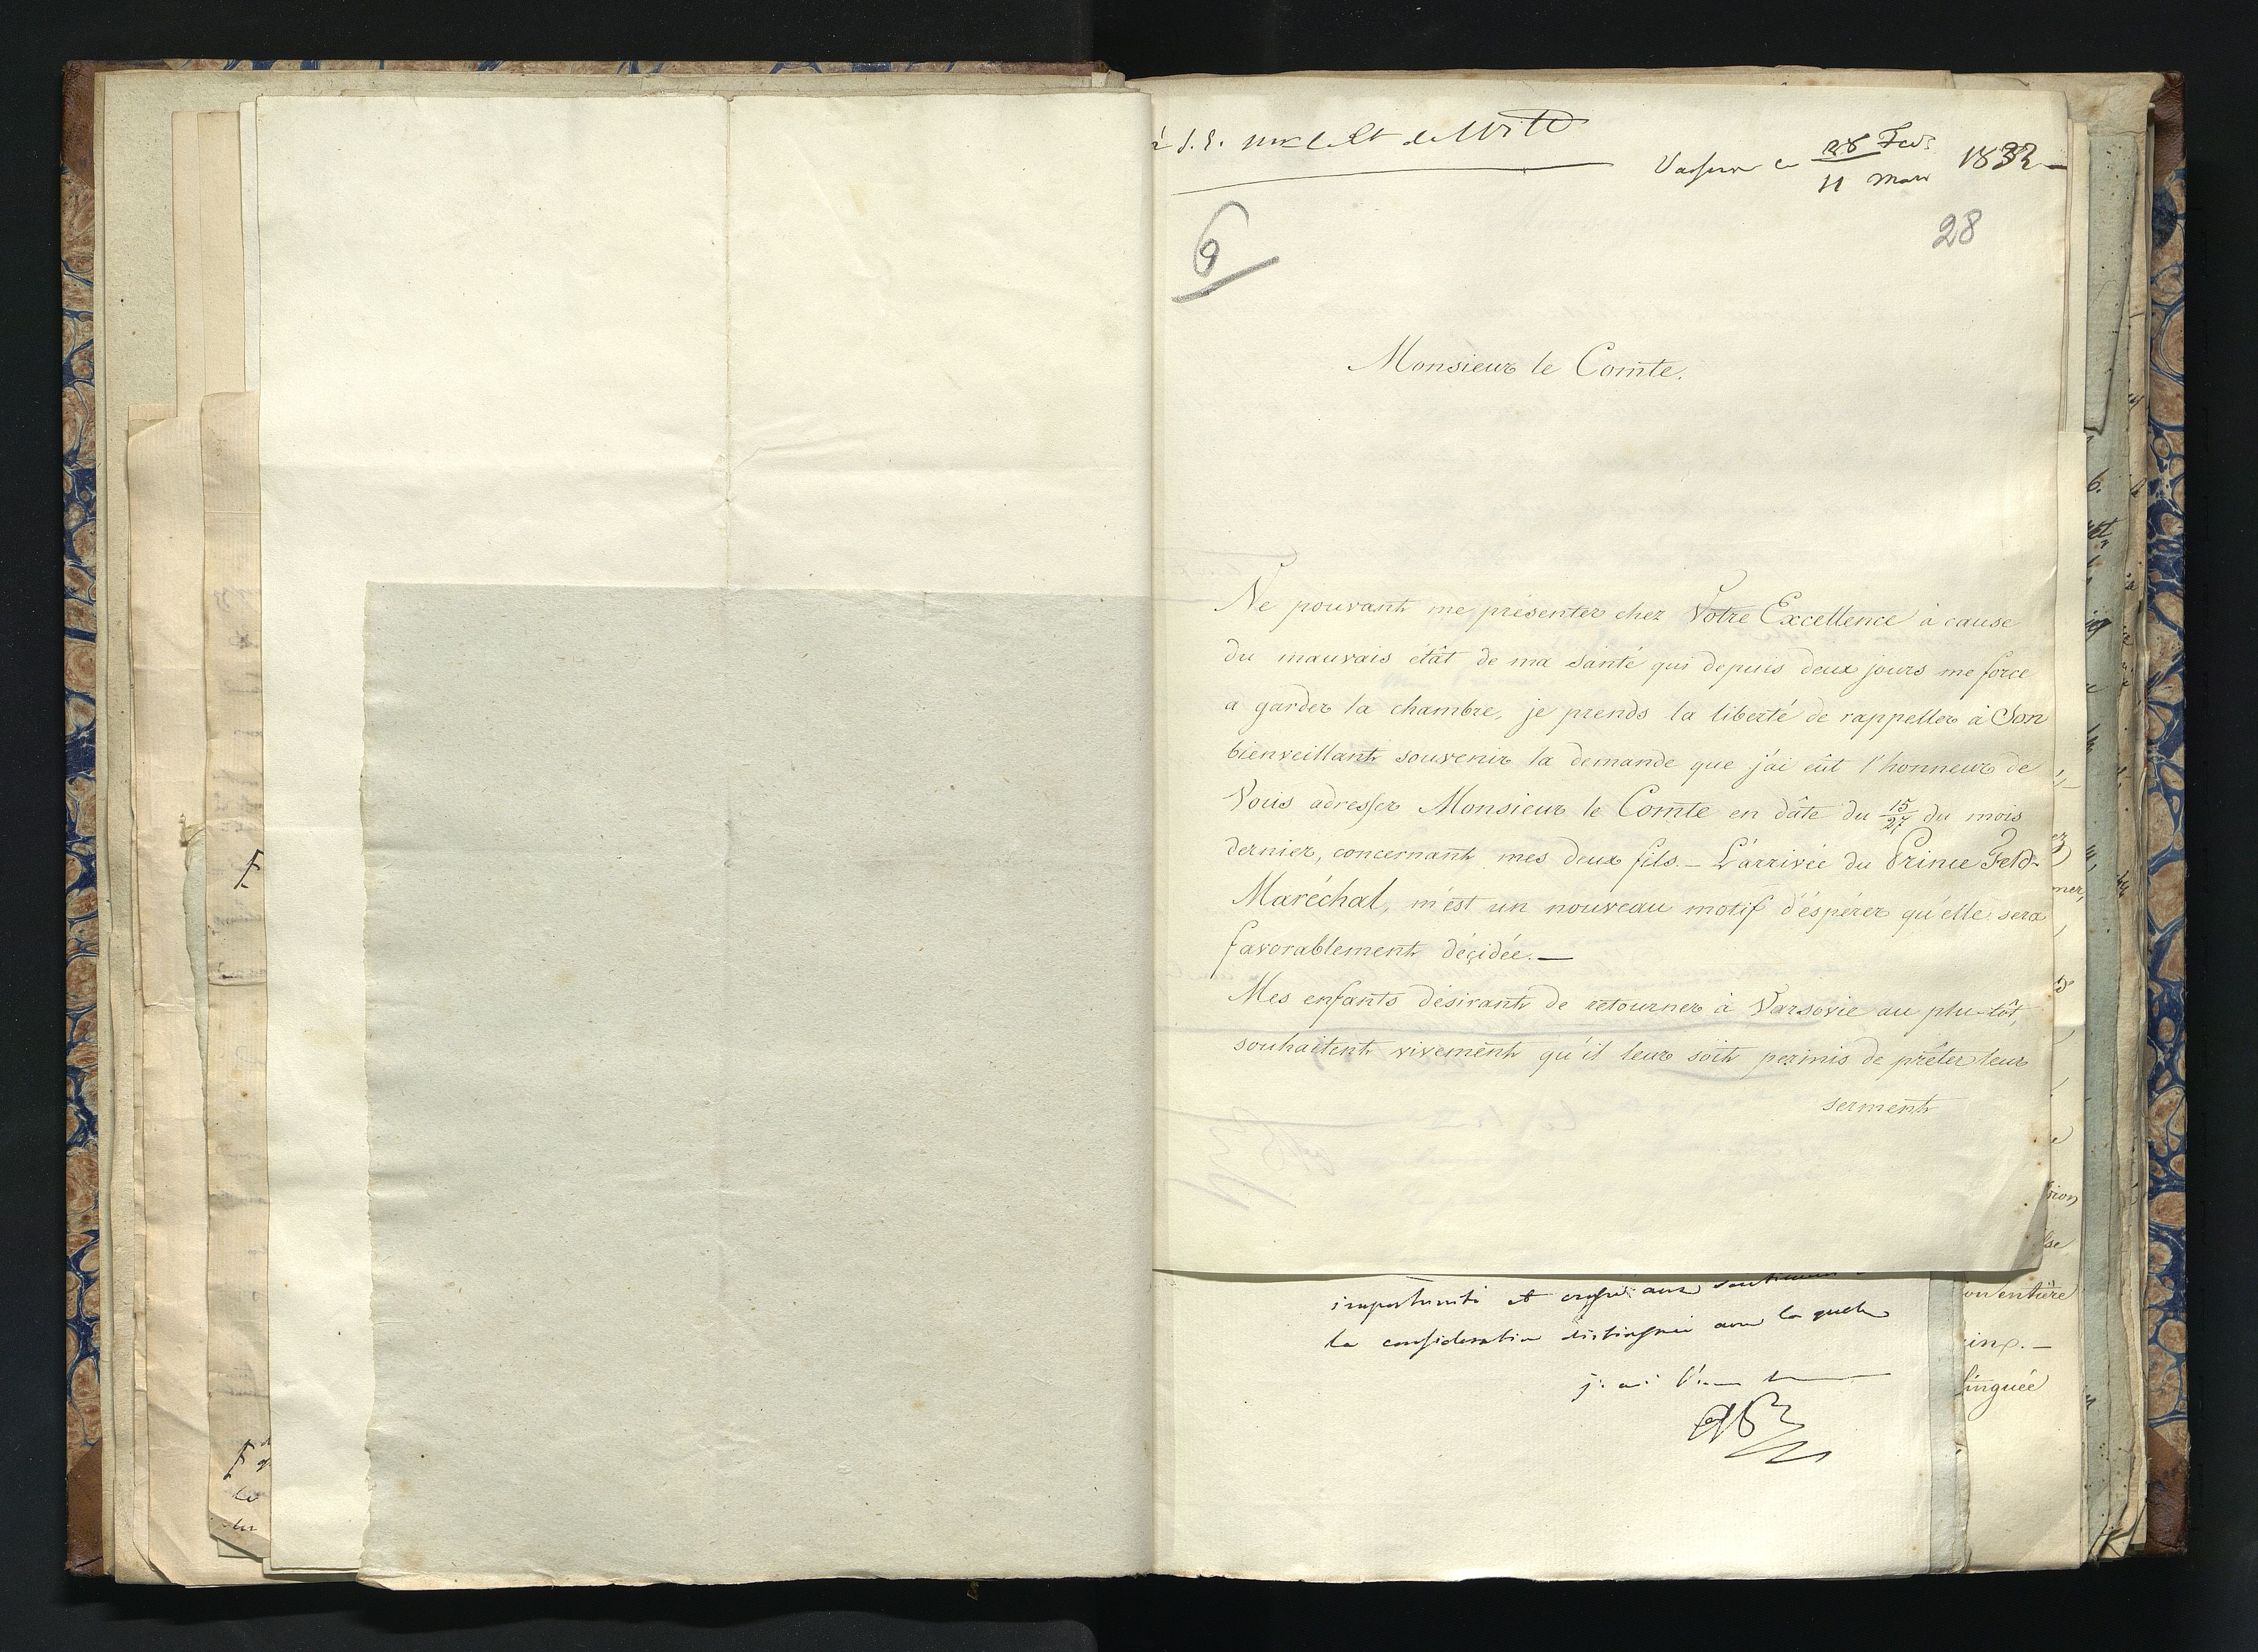 à S. E. Mr le Ct de Witt
Varsovie ce 28 Fevr 1832
11 Mars
28
6
Monsieur le Comte.
Ne pouvant me présenter chez Votre Excellence à cause
du mauvais étât de ma santé qui depuis deux jours me force
a garder la chambre, je prends la liberté de rappeller à Son
bienveillant souvenir la demande que j'ai eût l'honneur de
Vous adresser Monsieur le Comte en dâte du 15/27 du mois
dernier, concernant mes deux fils. — L'arrivée du Prince Feld-
Maréchal, m'est un nouveau motif d'éspérer qu'elle sera
favorablement décidée. —
Mes enfants désirant de retourner à Varsovie au plu-tôt,
souhaitent vivement qu'il leur soit permis de prêter leur
serment
importunité et
la consideration distinguée avec la quelle
j'ai l'